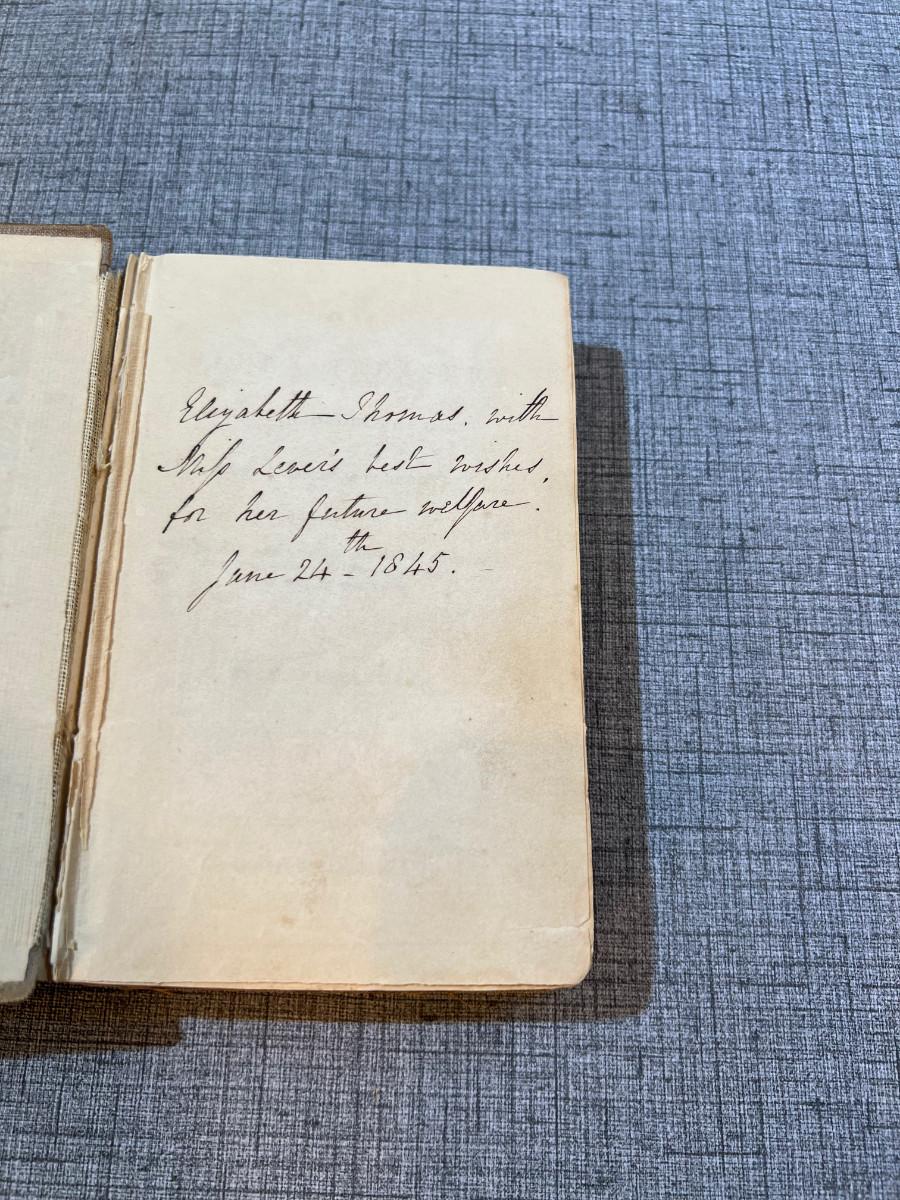 Elizabeth Thomas. with
Miſs Lever's best wishes,
for her future welfare.
June 24th - 1845. -